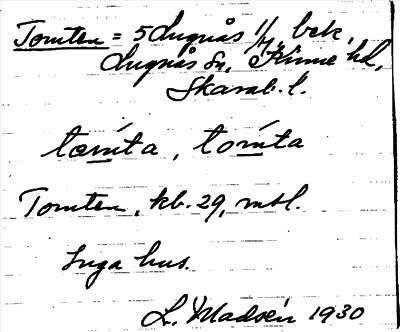 Tomten = 5 Lugnås 1/1, bek,
Lugnås sn, Kinne hd,
Skarab. l.
tæmta, tomta
Tomten, kb. 29, mtl.
Inga hus.
L. Madsén 1930